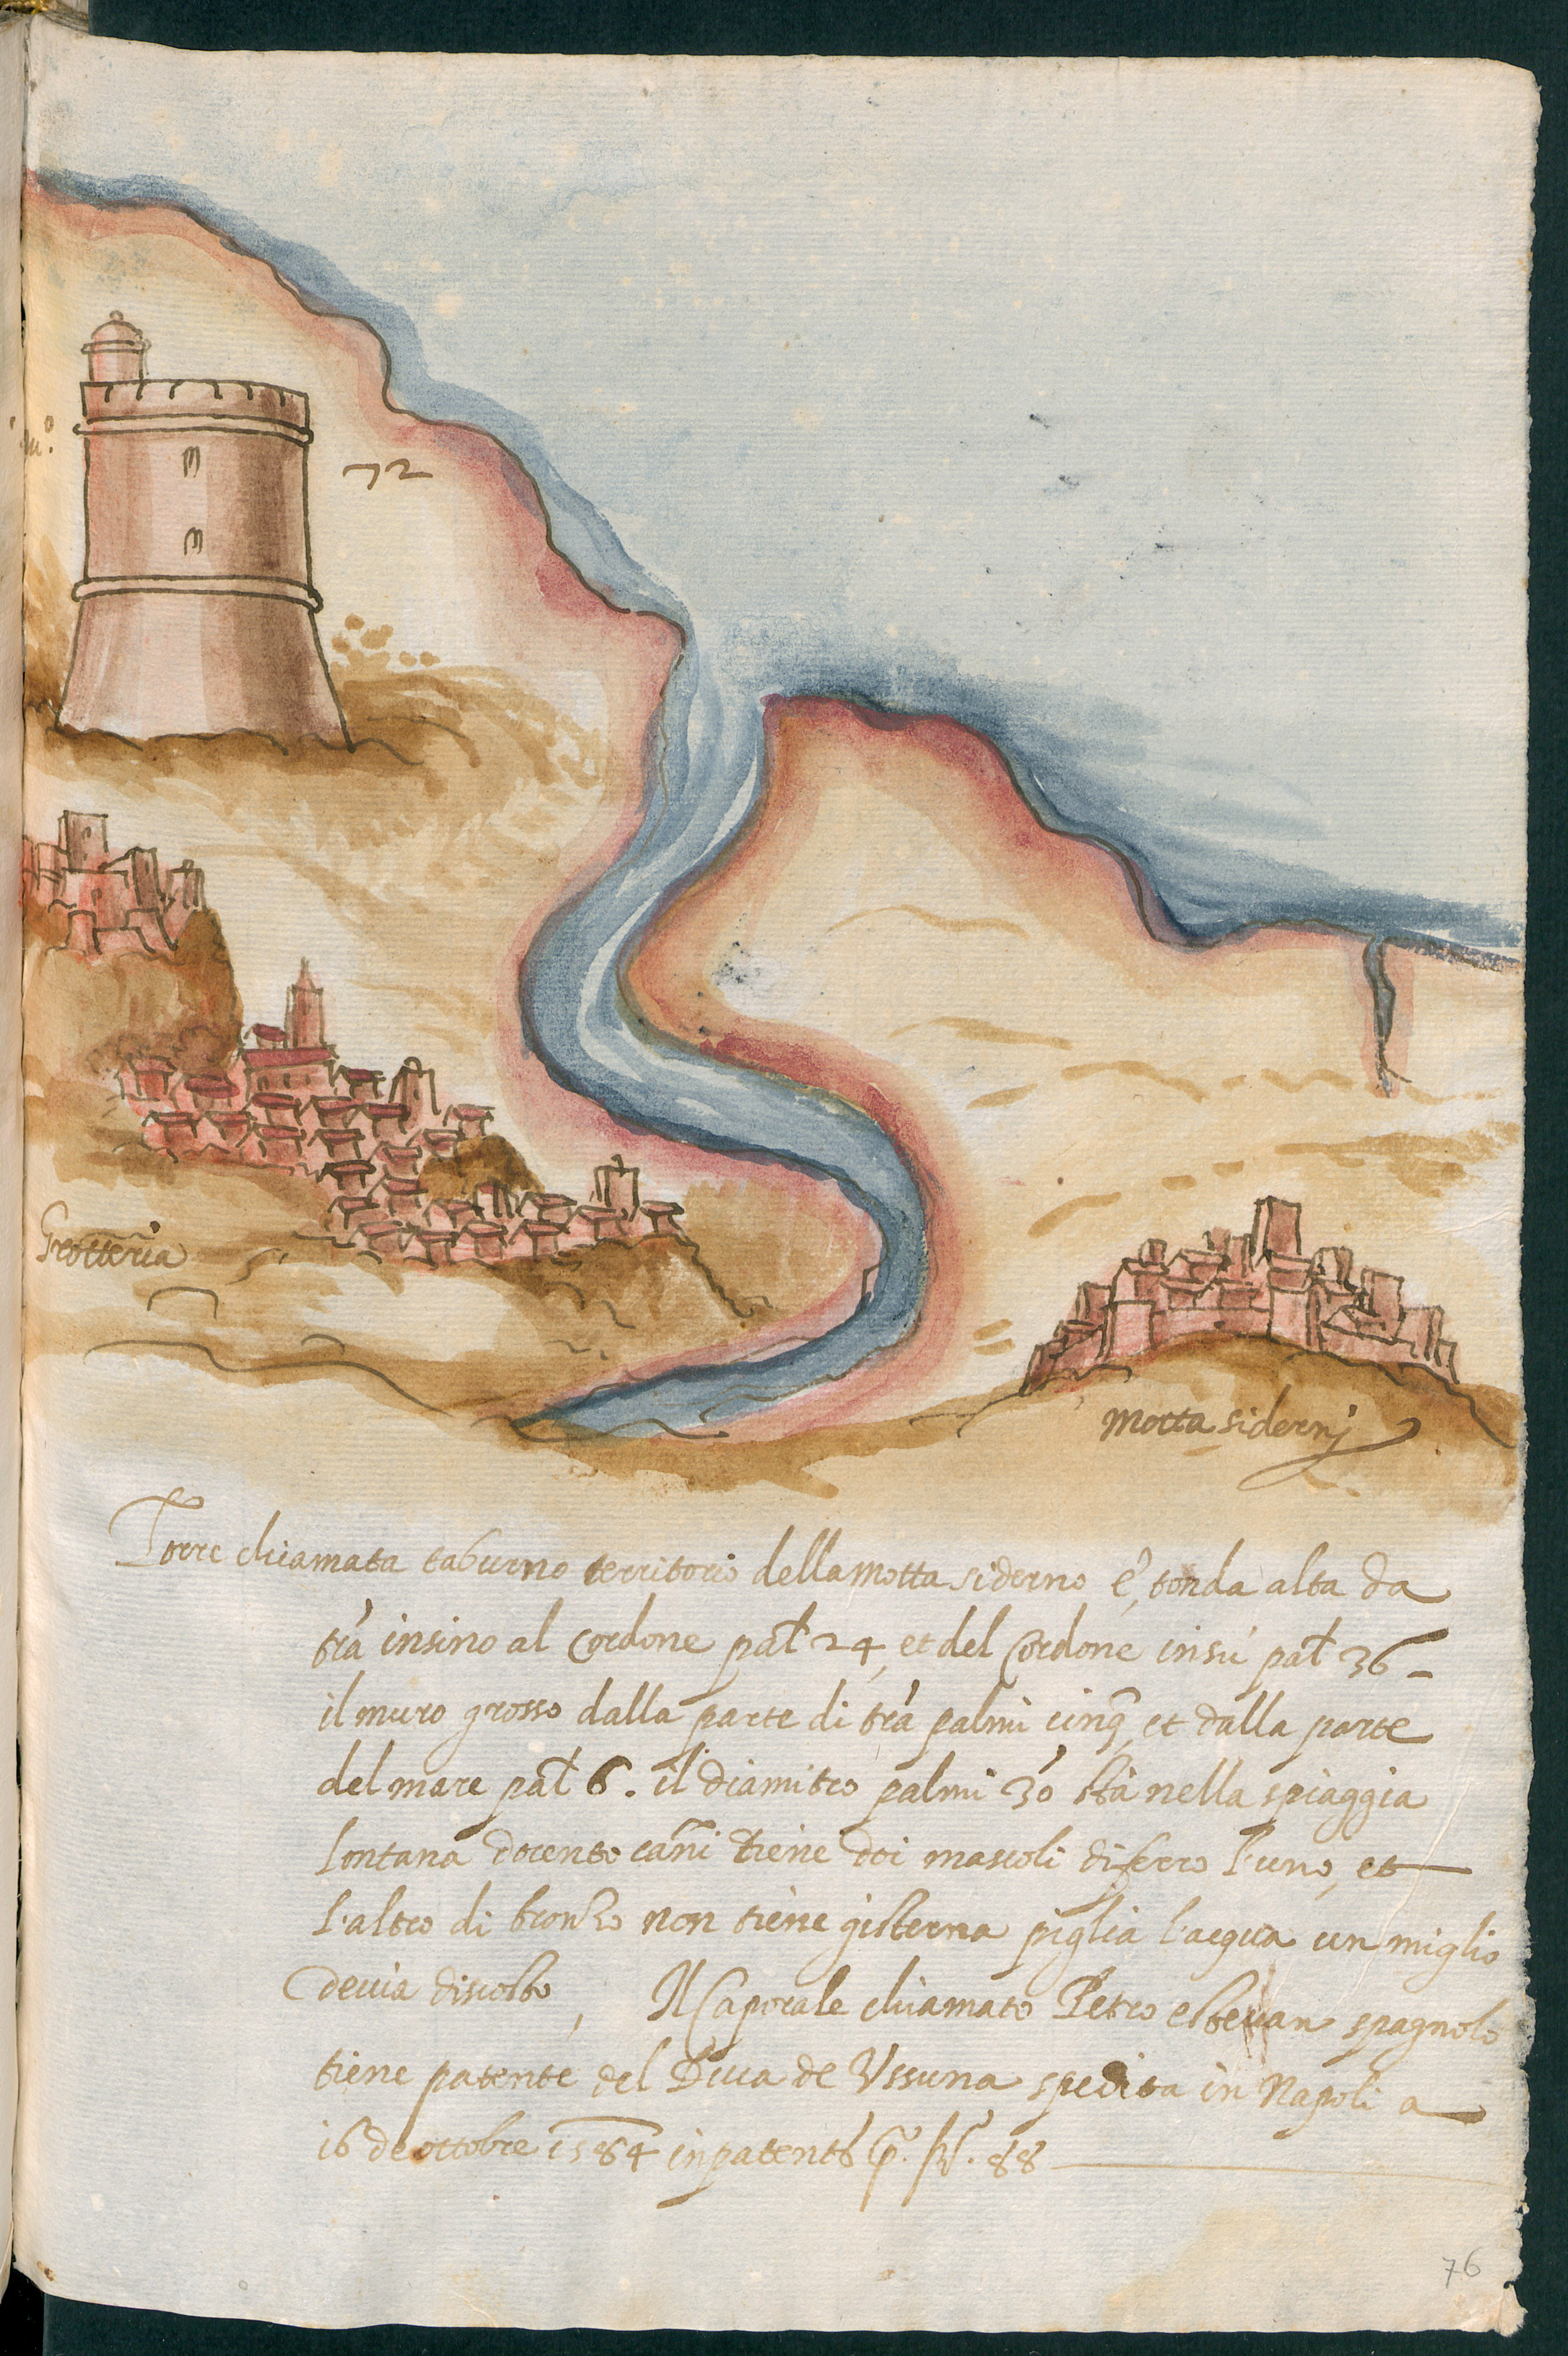 72
Grotteria
Motta sidernj
Torre chiamata taburno territorio della motta siderno é, tonda alta da
trà insino al cordone pal 24, et del Cordone insú pal 36 -
il muro grosso dalla parte di trà palmi cinq et dalla parte
del mare pal 6. il diamitro palmi 30 stà nella spiaggia
lontana docento canni tiene doi mascoli di ferro l'uno, et
l'altro di bronzo non tiene gisterna piglia l'acqua un miglio
de uia discosto, Il Caporale chiamato Petro esteuan spagnolo
tiene patente del Duca de Ussuna spedita in Napoli a
16 de ottobre 1584 in patent 88
76